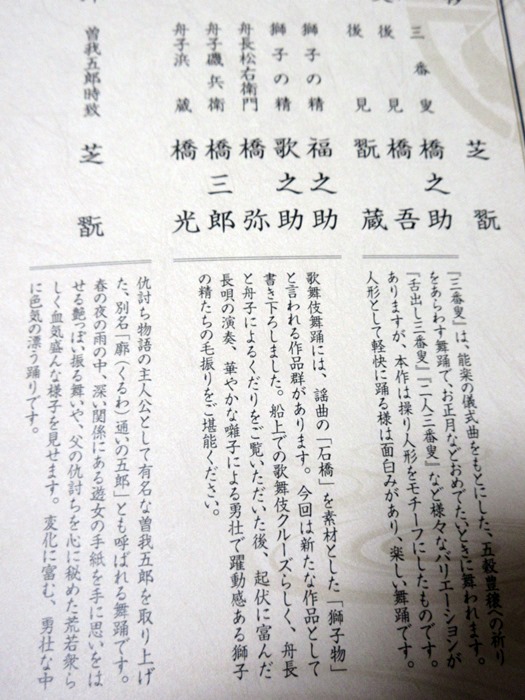 芝翫
三番叟 橋之助
後見 橋吾
後見 翫蔵
『三番叟』は、能楽の儀式曲をもとにした、五穀豊穣への祈り
をあらわす舞踊で、お正月などおめでたいときに舞われます。
『舌出し三番叟』『二人三番叟』など様々なバリエーションが
ありますが、本作は操り人形をモチーフにしたものです。
人形として軽快に踊る様は面白みがあり、楽しい舞踊です。
獅子の精 福之助
獅子の精 歌之助
舟長松右衛門 橋弥
舟子磯兵衛 橋三郎
舟子浜蔵 橋光
歌舞伎舞踊には、謡曲の「石橋」を素材とした「獅子物」
と言われる作品群があります。今回は新たな作品として
書き下ろしました。船上での歌舞伎クルーズらしく、舟長
と舟子によるくだりをご覧いただいた後、起伏に富んだ
長唄の演奏、華やかな囃子による勇壮で躍動感ある獅子
の精たちの毛振りをご堪能ください。
曽我五郎時致 芝翫
仇討ち物語の主人公として有名な曽我五郎を取り上げ
た、別名「廓（くるわ）通いの五郎」とも呼ばれる舞踊です。
春の夜の雨の中、深い関係にある遊女の手紙を手に思いをは
せる艶っぽい振る舞いや、父の仇討ちを心に秘めた荒若衆ら
しく血気盛んな様子を見せます。変化に富む、勇壮な中
に色気の漂う踊りです。